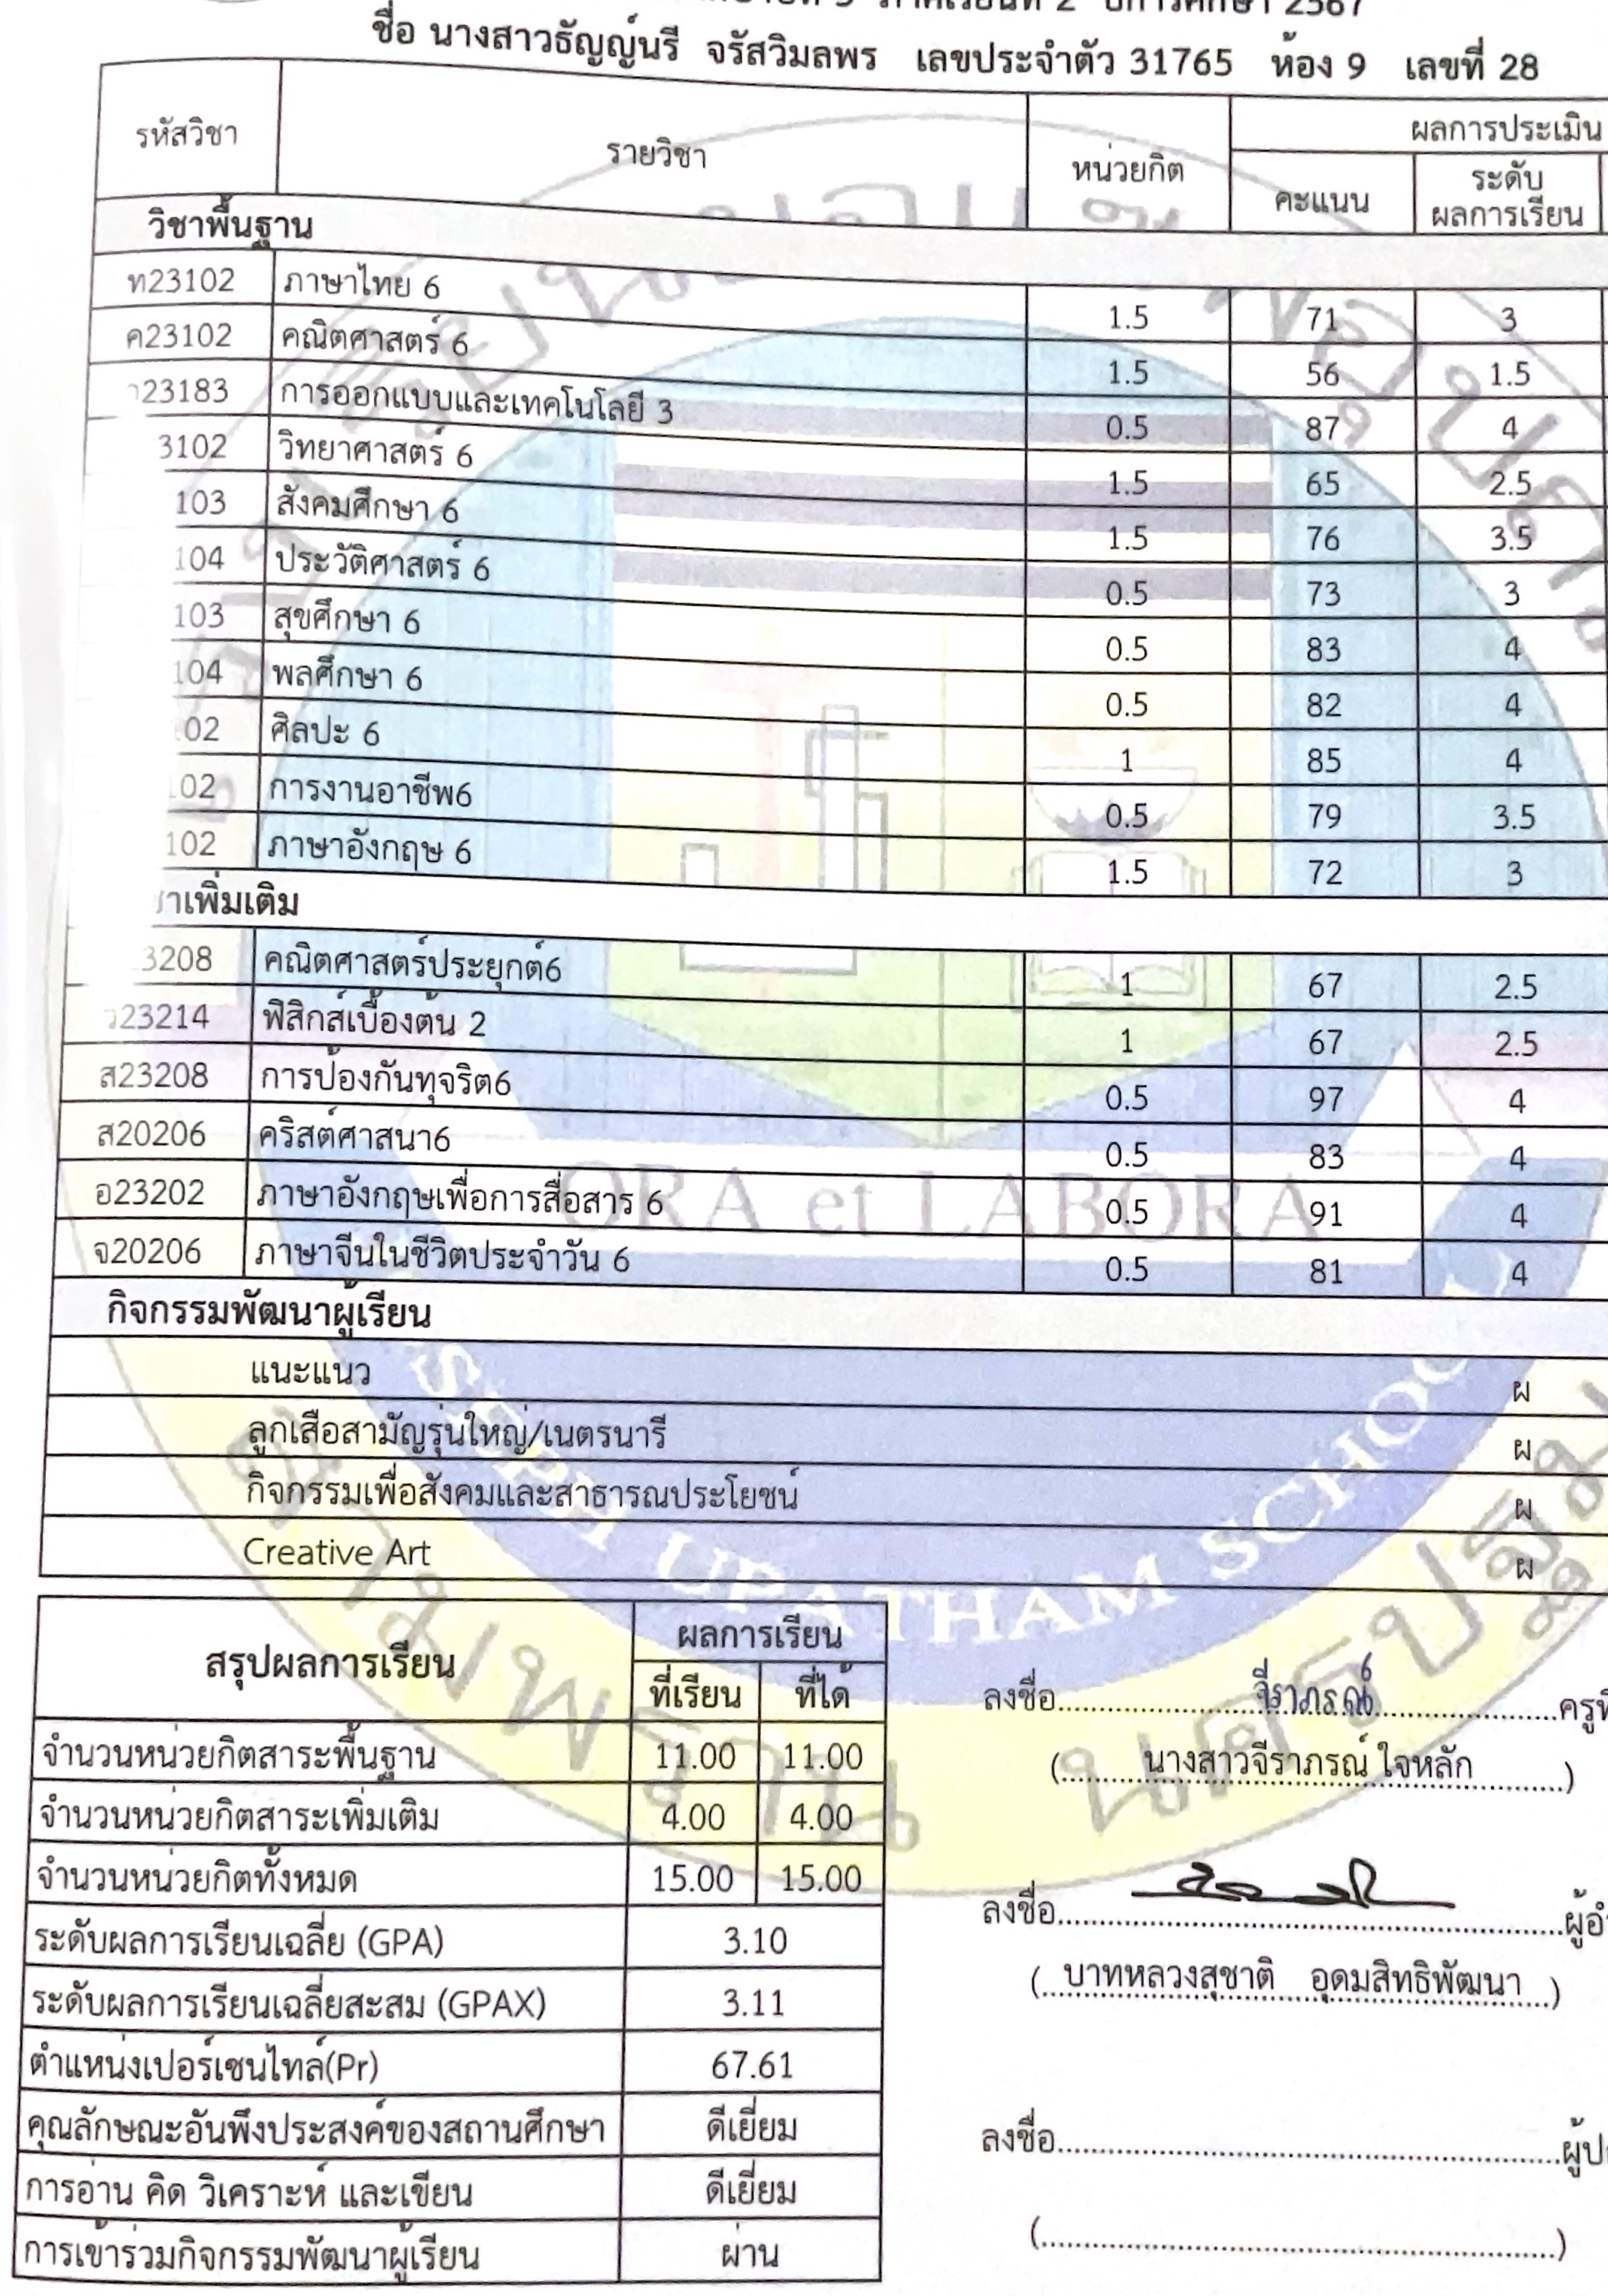 2 ปีการศึกษา 2567
ชื่อ นางสาวธัญญ์นรี จรัสวิมลพร เลขประจำตัว 31765 ห้อง 9 เลขที่ 28
รหัสวิชา รายวิชา หน่วยกิต ผลการประเมิน
คะแนน ระดับ
ผลการเรียน
วิชาพื้นฐาน
ท23102 ภาษาไทย 6 1.5 71 3
ค23102 คณิตศาสตร์ 6 1.5 56 1.5
23183 การออกแบบและเทคโนโลยี 3 0.5 87 4
3102 วิทยาศาสตร์ 6 1.5 65 2.5
103 สังคมศึกษา 6 1.5 76 3.5
104 ประวัติศาสตร์ 6 0.5 73 3
103 สุขศึกษา 6 0.5 83 4
104 พลศึกษา 6 0.5 82 4
02 ศิลปะ 6 1 85 4
102 การงานอาชีพ6 0.5 79 3.5
102 ภาษาอังกฤษ 6 1.5 72 3
ชาเพิ่มเติม
3208 คณิตศาสตร์ประยุกต์6 1 67 2.5
ว23214 ฟิสิกส์เบื้องต้น 2 1 67 2.5
ส23208 การป้องกันทุจริต6 0.5 97 4
ส20206 คริสต์ศาสนา6 0.5 83 4
อ23202 ภาษาอังกฤษเพื่อการสื่อสาร 6 0.5 91 4
จ20206 ภาษาจีนในชีวิตประจำวัน 6 0.5 81 4
ORA et LABORA
กิจกรรมพัฒนาผู้เรียน
แนะแนว ผ
ลูกเสือสามัญรุ่นใหญ่/เนตรนารี ผ
กิจกรรมเพื่อสังคมและสาธารณประโยชน์ ผ
Creative Art ผ
UPATHAM SCHOOL
สามพราน นครปฐม
สรุปผลการเรียน ผลการเรียน
ที่เรียน ที่ได้
จำนวนหน่วยกิตสาระพื้นฐาน 11.00 11.00
จำนวนหน่วยกิตสาระเพิ่มเติม 4.00 4.00
จำนวนหน่วยกิตทั้งหมด 15.00 15.00
ระดับผลการเรียนเฉลี่ย (GPA) 3.10
ระดับผลการเรียนเฉลี่ยสะสม (GPAX) 3.11
ตำแหน่งเปอร์เซนไทล์(Pr) 67.61
คุณลักษณะอันพึงประสงค์ของสถานศึกษา ดีเยี่ยม
การอ่าน คิด วิเคราะห์ และเขียน ดีเยี่ยม
การเข้าร่วมกิจกรรมพัฒนาผู้เรียน ผ่าน
ลงชื่อ จีราภรณ์ ครูที่
( นางสาวจีราภรณ์ ใจหลัก )
ลงชื่อ ผู้อำ
( บาทหลวงสุชาติ อุดมสิทธิพัฒนา )
ลงชื่อ ผู้ป
( )